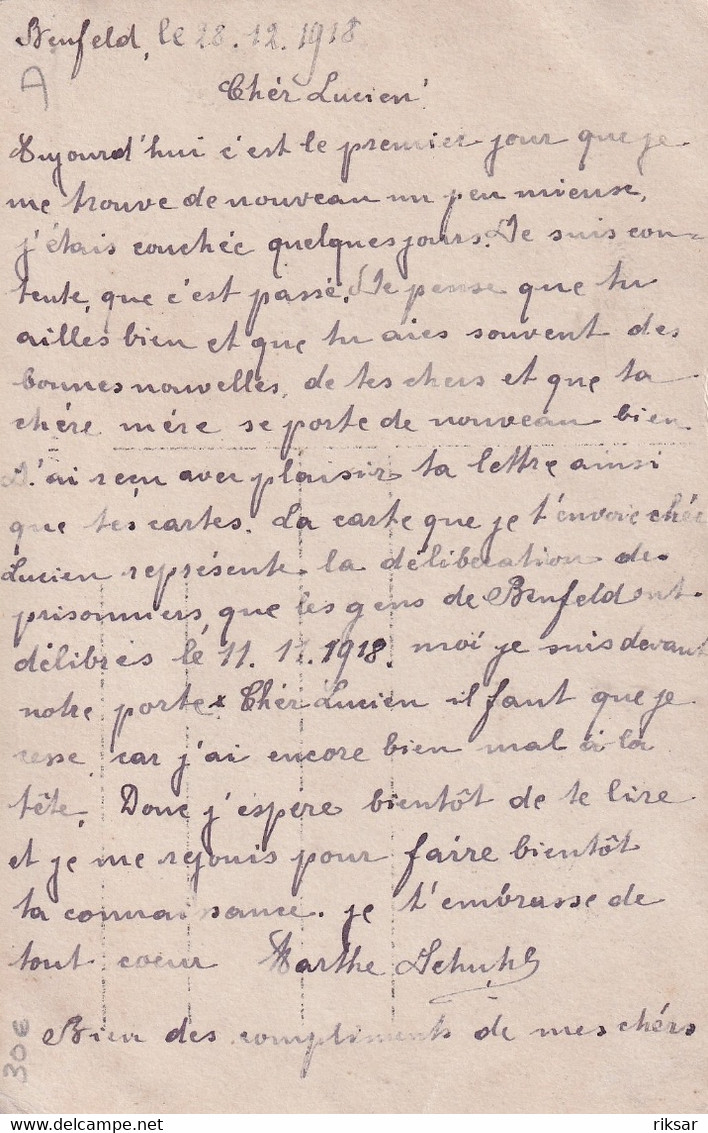 Benfeld, le 28.12.1918
A
Chér Lucien!
Aujourd'hui c'est le premier jour que je
me trouve de nouveau un peu mieuse,
j'étais couchée quelques jours. Je suis con-
tente, que c'est passé. Je pense que tu
ailles bien et que tu aies souvent des
bonnes nouvelles, de tes chers et que ta
chére mére se porte de nouveau bien.
J'ai reçu avec plaisir ta lettre ainsi
que tes cartes. La carte que je t'envoie chér
Lucien représente la délibération de
prisonniers, que les gens de Benfeld ont
délibrés le 11. 11. 1918. moi je suis devant
notre porte x Chér Lucien il faut que je
cesse, car j'ai encore bien mal à la
tête. Donc j'espère bientôt de te lire
et je me rejouis pour faire bientôt
ta connaissance. je t'embrasse de
tout coeur Marthe
Bien des compliments de mes chérs
30€
delcampe.net
riksar